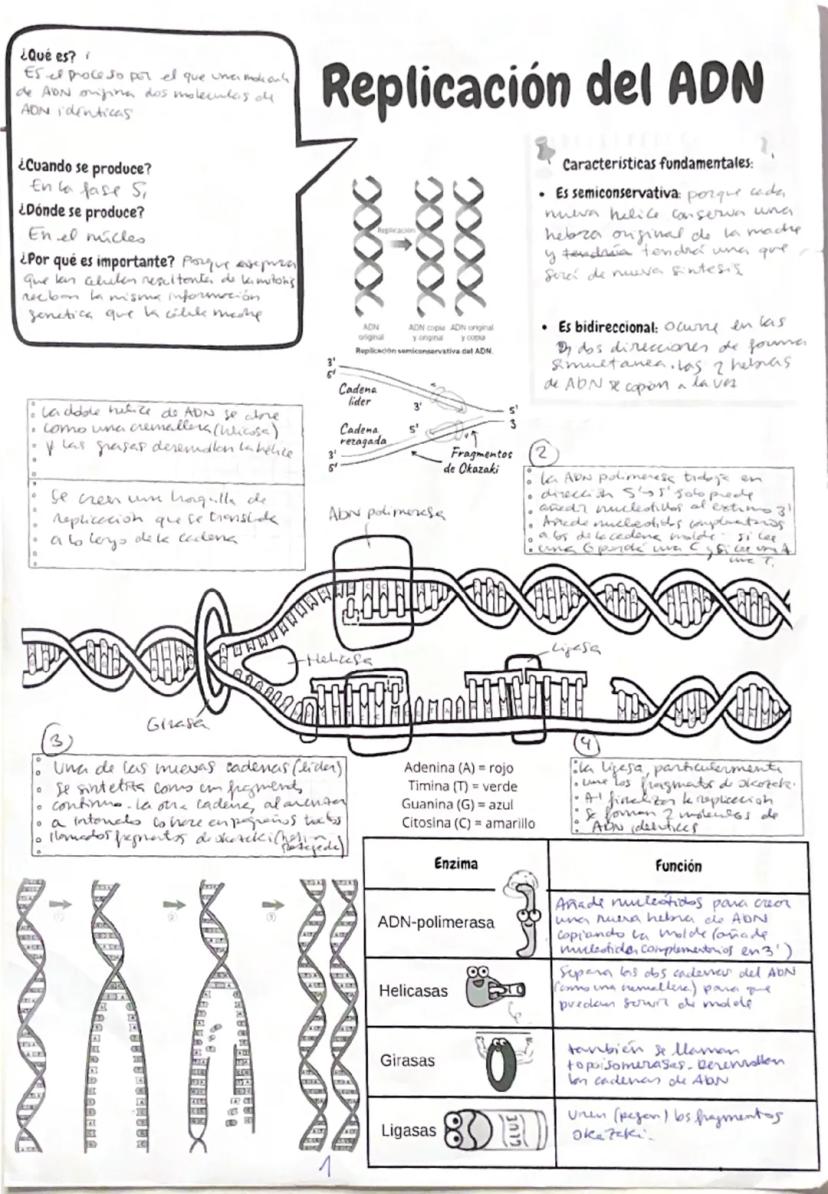 Replicación del ADN
¿Qué es?
Es el proceso por el que una molécula
de ADN origina dos moleculas de
ADN identicas
¿Cuando se produce?
En la fase S,
¿Dónde se produce?
En el núcleo
¿Por qué es importante? Porque asegura
que las células resultantes de la mitosis
reciban la misma información
genetica que la célula madre
Replicación
ADN
original
ADN copia
y original
ADN original
y copia
Replicación semiconservativa del ADN.
Características fundamentales:
• Es semiconservativa: porque cada
nueva helice conserva una
hebra original de la madre
y tendrá una que
será de nueva síntesis
• Es bidireccional: Ocurre en las
dos direcciones de forma
simultanea. Las 2 hebras
de ADN se copian a la vez
3'
5'
Cadena
líder
3'
5'
3
Cadena
rezagada
5'
3'
5'
Fragmentos
de Okazaki
La doble helice de ADN se abre
como una cremallera (helicasa)
y las girasas desenrollan la hélice
Se crea una horquilla de
replicación que se translada
a lo largo de la cadena
2
La ADN polimerasa trabaja en
dirección 5'→3' solo puede
añadir nucleotidos al extremo 3'
Añade nucleotidos complementarios
a los de la cadena molde: si lee
una G pondrá una C y si lee una A
una T.
ADN polimerasa
Helicasa
Ligasa
Girasa
3
Una de las nuevas cadenas (lider)
se sintetiza como un fragmento
continuo. La otra cadena, al avanzar
a intervalos lo hace en pequeños trozos
llamados fragmentos de okazaki
Adenina (A) = rojo
Timina (T) = verde
Guanina (G) = azul
Citosina (C) = amarillo
4
La ligasa, particularmente
une los fragmentos de okazaki.
Al finalizar la replicación
se forman 2 moleculas de
ADN idénticas
Enzima
Función
ADN-polimerasa
Añade nucleótidos para crear
una nueva hebra de ADN
copiando la molde (añade
nucleotidos complementarios en 3')
Helicasas
Separa las dos cadenas del ADN
(como una cremallera) para que
puedan servir de molde
Girasas
también se llaman
topoisomerasas. Desenrollan
las cadenas de ADN
Ligasas
GLUE
Unen (pegan) los fragmentos
okazaki.
1